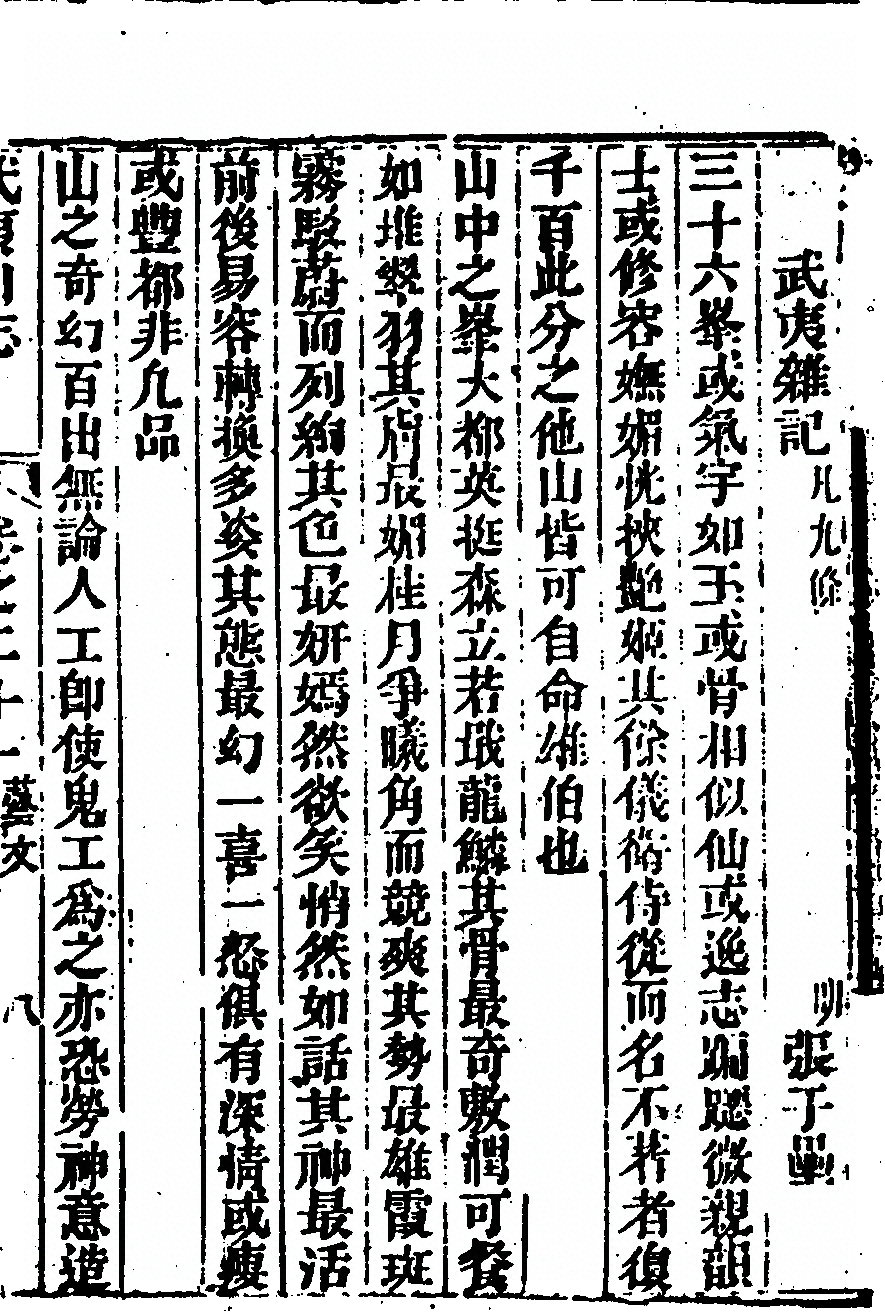 武夷雜記凡九條 明張于壘
三十六峯或氣宇如玉或骨相似仙或逸志蹁躚微親韻
士或修容嫵媚恍挾艶姬其餘儀衛侍從而名不著者復
千百此分之他山皆可自命雄伯也
山中之峯大都英挺森立若戢龍鱗其骨最奇敷潤可餐
如堆翠羽其膚最媚桂月爭曦角而競爽其勢最雄霞斑
霧駁蔚而列絢其色最妍嫣然欲笑悄然如話其神最活
前後易容轉換多姿其態最幻一喜一怒俱有深情或瘦
或豐都非凢品
山之奇幻百出無論人工卽使鬼工爲之亦恐勞神意造
武夷山志 卷之二十一 藝文 八